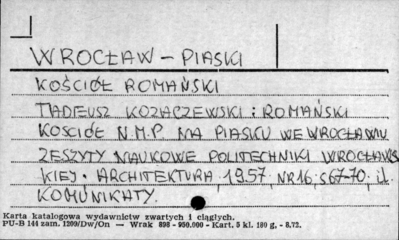 WROCŁAW - PIASKI
KOŚCIÓŁ ROMAŃSKI
TADEUSZ KOZACZEWSKI: ROMAŃSKI
KOŚCIÓŁ N.M.P NA PIASKU WE WROCŁAWIU
ZESZYTY NAUKOWE POLITECHNIKI WROCŁAWS
KIEJ. ARCHITEKTURA, 1957, NR 16, s 67-70; il.
KOMUNIKATY.
Karta katalogowa wydawnictw zwartych i ciągłych.
PU-B 144 zam. 1209/Dw/On — Wrak 898 - 950.000 - Kart. 5 kl. 180 g, - 8.72.